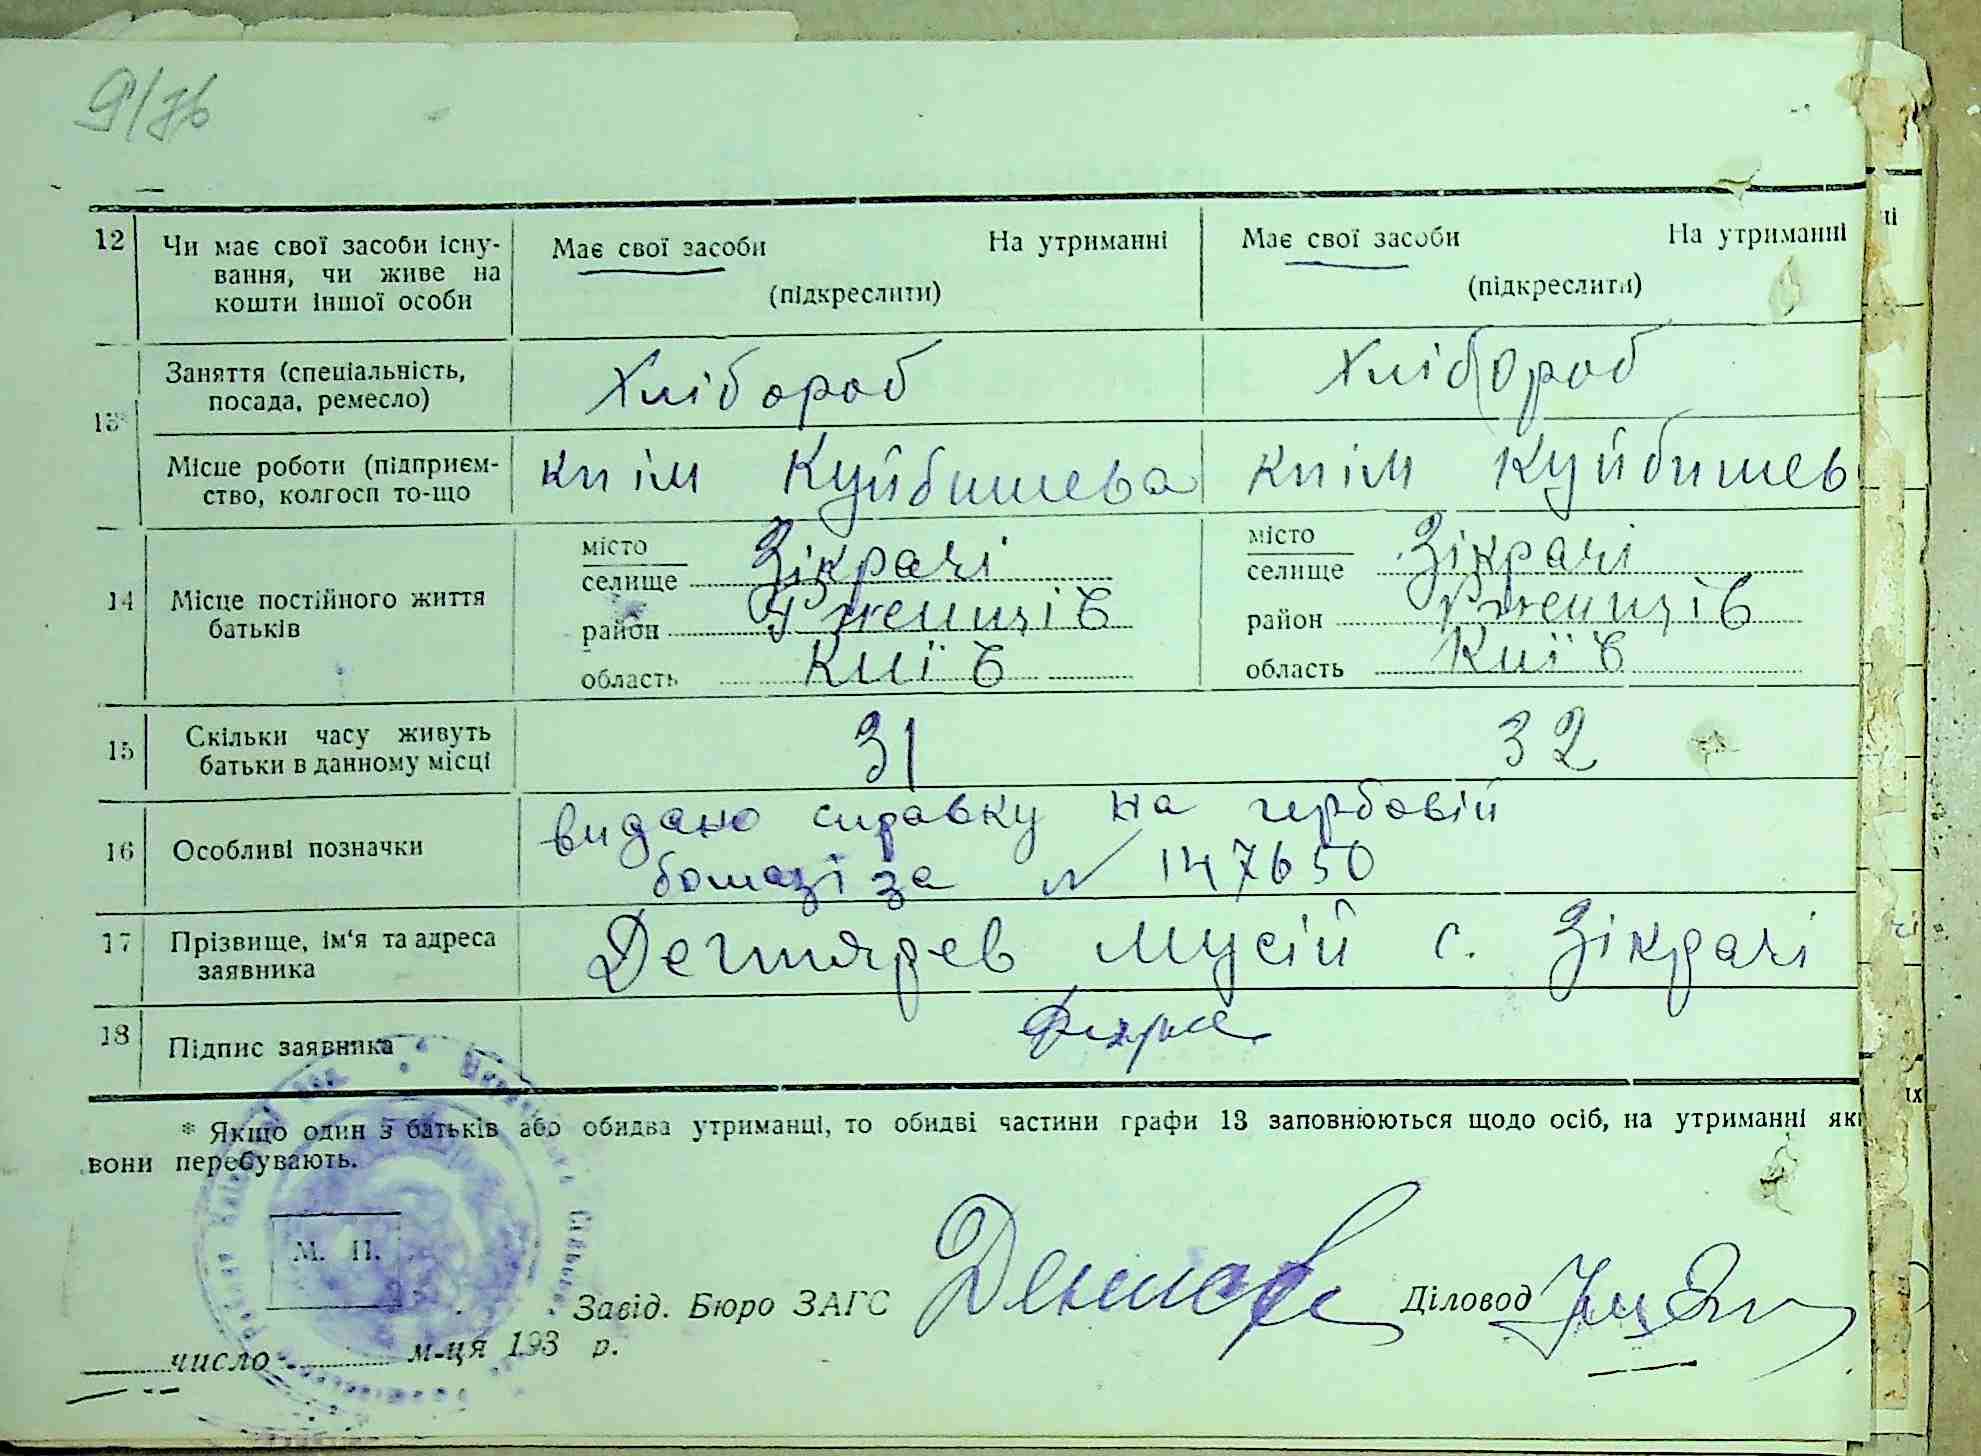 12 Чи має свої засоби існу- Має свої засоби На утриманні Має свої засоби На утриманні
вання, чи живе на
кошти іншої особи (підкреслити) (підкреслити)
13* Заняття (спеціальність, Хлібороб Хлібороб
посада, ремесло)
Місце роботи (підприєм- кпім Куйбишева кпім Куйбишев
ство, колгосп то-що
14 Місце постійного життя батьків
місто Зікрачі місто Зікрачі
селище селище
район Ржищів район Ржищів
область Київ область Київ
15 Скільки часу живуть 31 32
батьки в данному місці
16 Особливі позначки видано справку на гербовій
бомазі за № 147650
17 Прізвище, ім'я та адреса Дегтярев Мусій с. Зікрачі
заявника
18 Підпис заявника
* Якщо один з батьків або обидва утриманці, то обидві частини графи 13 заповнюються щодо осіб, на утриманні як
вони перебувають.
М. П.
Завід. Бюро ЗАГС Діловод
число м-ця 193 р.